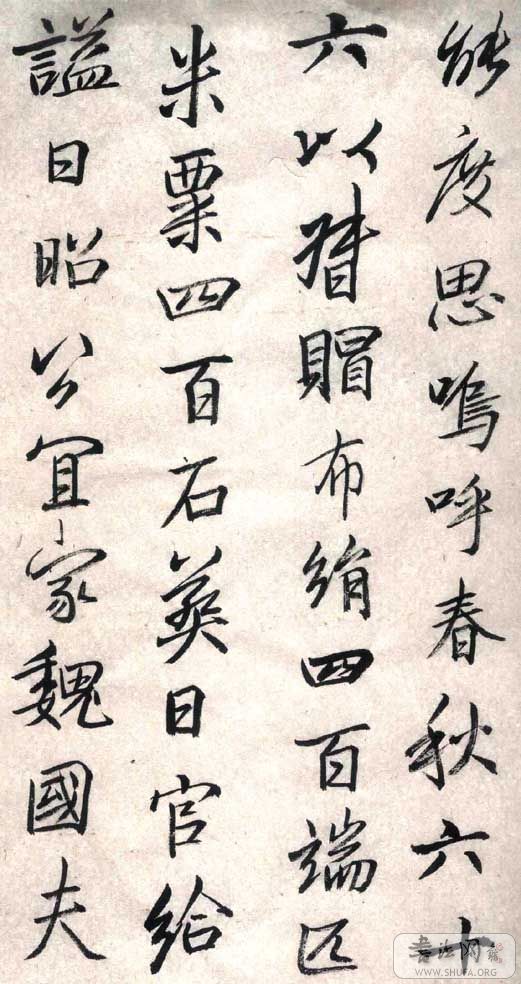 能度思嗚呼春秋六十
六以賵布絹四百端匹
米粟四百石葬日官給
謚曰昭公宜家魏國夫
书法网
WWW.SHUFA.ORG